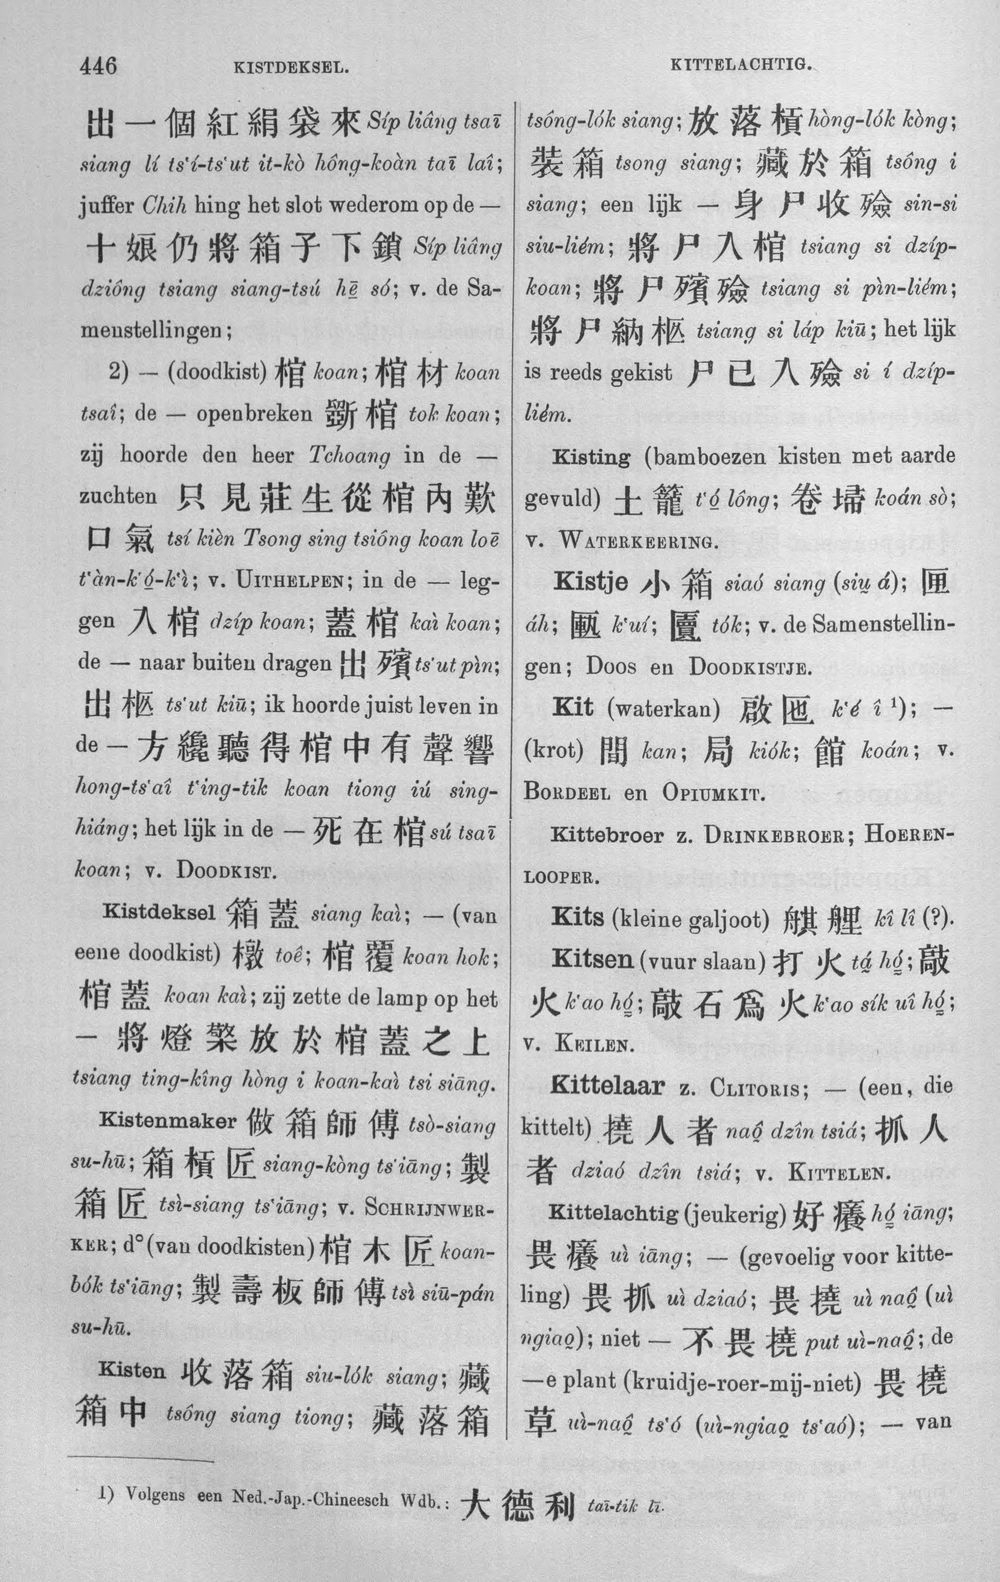 446
KISTDEKSEL.
KITTELACHTIG.
出一個紅絹袋來 Síp liâng tsaī
siang lí ts‘í-ts‘ut it-kò hông-koàn taī laî;
juffer Chih hing het slot wederom op de —
十娘仍將箱子下鎖 Síp liâng
dzióng tsiang siang-tsú hē só; v. de Sa-
menstellingen;
2) — (doodkist) 棺 koan; 棺材 koan
tsaî; de — openbreken 斲棺 tok koan;
zij hoorde den heer Tchoang in de —
zuchten 只見莊生從棺內歎
口氣 tsí kièn Tsong sing tsióng koan loē
t‘àn-k‘ó̤-k‘ì; v. UITHELPEN; in de — leg-
gen 入棺 dzíp koan; 蓋棺 kaì koan;
de — naar buiten dragen 出殯 ts‘ut pìn;
出柩 ts‘ut kiū; ik hoorde juist leven in
de — 方纔聽得棺中有聲響
hong-ts‘aî t‘ing-tik koan tiong iú sing-
hiáng; het lijk in de — 死在棺 sú tsaī
koan; v. DOODKIST.
Kistdeksel 箱蓋 siang kaì; — (van
eene doodkist) 橔 toê; 棺覆 koan hok;
棺蓋 koan kaì; zij zette de lamp op het
— 將燈檠放於棺蓋之上
tsiang ting-kîng hòng i koan-kaì tsi siāng.
Kistenmaker 做箱師傅 tsò-siang
su-hū; 箱槓匠 siang-kòng ts‘iāng; 製
箱匠 tsì-siang ts‘iāng; v. SCHRIJNWER-
KER; d° (van doodkisten) 棺木匠 koan-
bók ts‘iāng; 製壽板師傅 tsì siū-pán
su-hū.
Kisten 收落箱 siu-lók siang; 藏
箱中 tsông siang tiong; 藏落箱
tsóng-lók siang; 放落槓 hòng-lók kòng;
裝箱 tsong siang; 藏於箱 tsông i
siang; een lijk — 身尸收殮 sin-si
siu-liém; 將尸入棺 tsiang si dzíp-
koan; 將尸殯殮 tsiang si pìn-liém;
將尸納柩 tsiang si láp kiū; het lijk
is reeds gekist 尸已入殮 si í dzíp-
liém.
Kisting (bamboezen kisten met aarde
gevuld) 土籠 t‘ó̤ lông; 卷埽 koán sò;
v. WATERKEERING.
Kistje 小箱 siaó siang (siṳ á); 匣
áh; 匭 k‘uí; 匵 tók; v. de Samenstellin-
gen; DOOS en DOODKISTJE.
Kit (waterkan) 啟匜 k‘é î ¹); —
(krot) 間 kan; 局 kiók; 館 koán; v.
BORDEEL en OPIUMKIT.
Kittebroer z. DRINKEBROER; HOEREN-
LOOPER.
Kits (kleine galjoot) 艍艃 kî lî (?).
Kitsen (vuur slaan) 打火 tá̤ hó̤; 敲
火 k‘ao hó̤; 敲石爲火 k‘ao sík uî hó̤;
v. KEILEN.
Kittelaar z. CLITORIS; — (een, die
kittelt) 撓人者 naō̤ dzîn tsiá; 抓人
者 dziaó dzîn tsiá; v. KITTELEN.
Kittelachtig (jeukerig) 好癢 hó̤ iāng;
畏癢 uì iāng; — (gevoelig voor kitte-
ling) 畏抓 uì dziaó; 畏撓 uì naō̤ (uì
ngiao̤); niet — 不畏撓 put uì-naō̤; de
—e plant (kruidje-roer-mij-niet) 畏撓
草 uì-naō̤ ts‘ó (uì-ngiao̤ ts‘aó); — van
1) Volgens een Ned.-Jap.-Chineesch Wdb.: 大德利 taī-tik lī.